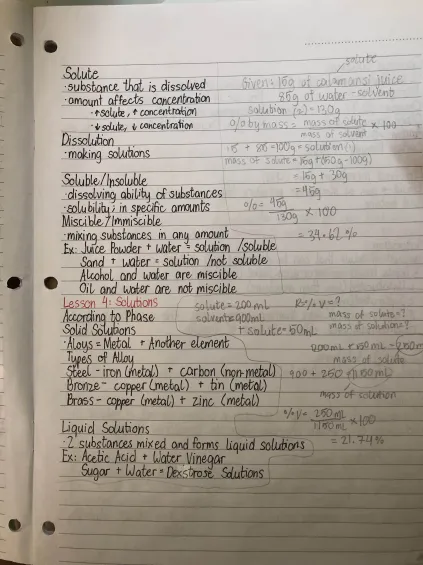 solute
Solute
Given: 15g of calamansi juice
·substance that is dissolved
85g of water - solvent
·amount affects concentration
solution (2) = 130g
·↑solute, ↑concentration
% by mass = mass of solute / mass of solvent × 100
·↓solute, ↓ concentration
Dissolution
·making solutions
15 + 85 = 100g = solution (1)
mass of solute = 15g + (130g - 100g)
= 15g + 30g
= 45g
Soluble/Insoluble
·dissolving ability of substances
·solubility; in specific amounts
% = 45g / 130g × 100
Miscible/Immiscible
·mixing substances in any amount
= 34.62%
Ex: Juice Powder + water = solution /soluble
Sand + water = solution /not soluble
Alcohol and water are miscible
Oil and water are not miscible
Lesson 4: Solutions
solute = 200 mL
% V = ?
According to Phase
solvent = 900mL
mass of solute = ?
Solid Solutions
+ solute = 50mL
mass of solution = ?
·Aloys = Metal + Another element
Types of Alloy
mass of solute
Steel - iron (metal) + carbon (non-metal)
900 + 250 = 1150mL
Bronze - copper (metal) + tin (metal)
Brass - copper (metal) + zinc (metal)
mass of solution
% V = 250mL / 1150mL × 100
Liquid Solutions
= 21.74%
·2 substances mixed and forms liquid solutions
Ex: Acetic Acid + Water Vinegar
Sugar + Water = Dexstrose Solutions